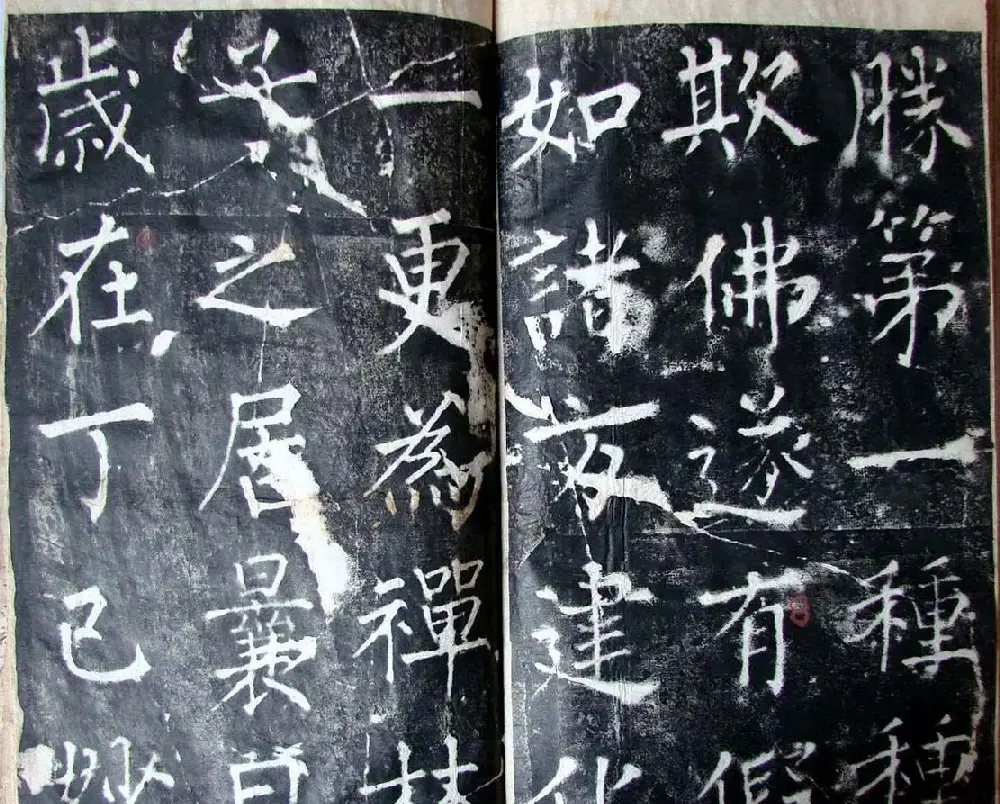 勝第一種種
欺佛遂有假
如諸建化
一更為禪林
子之居曩
歲在丁巳